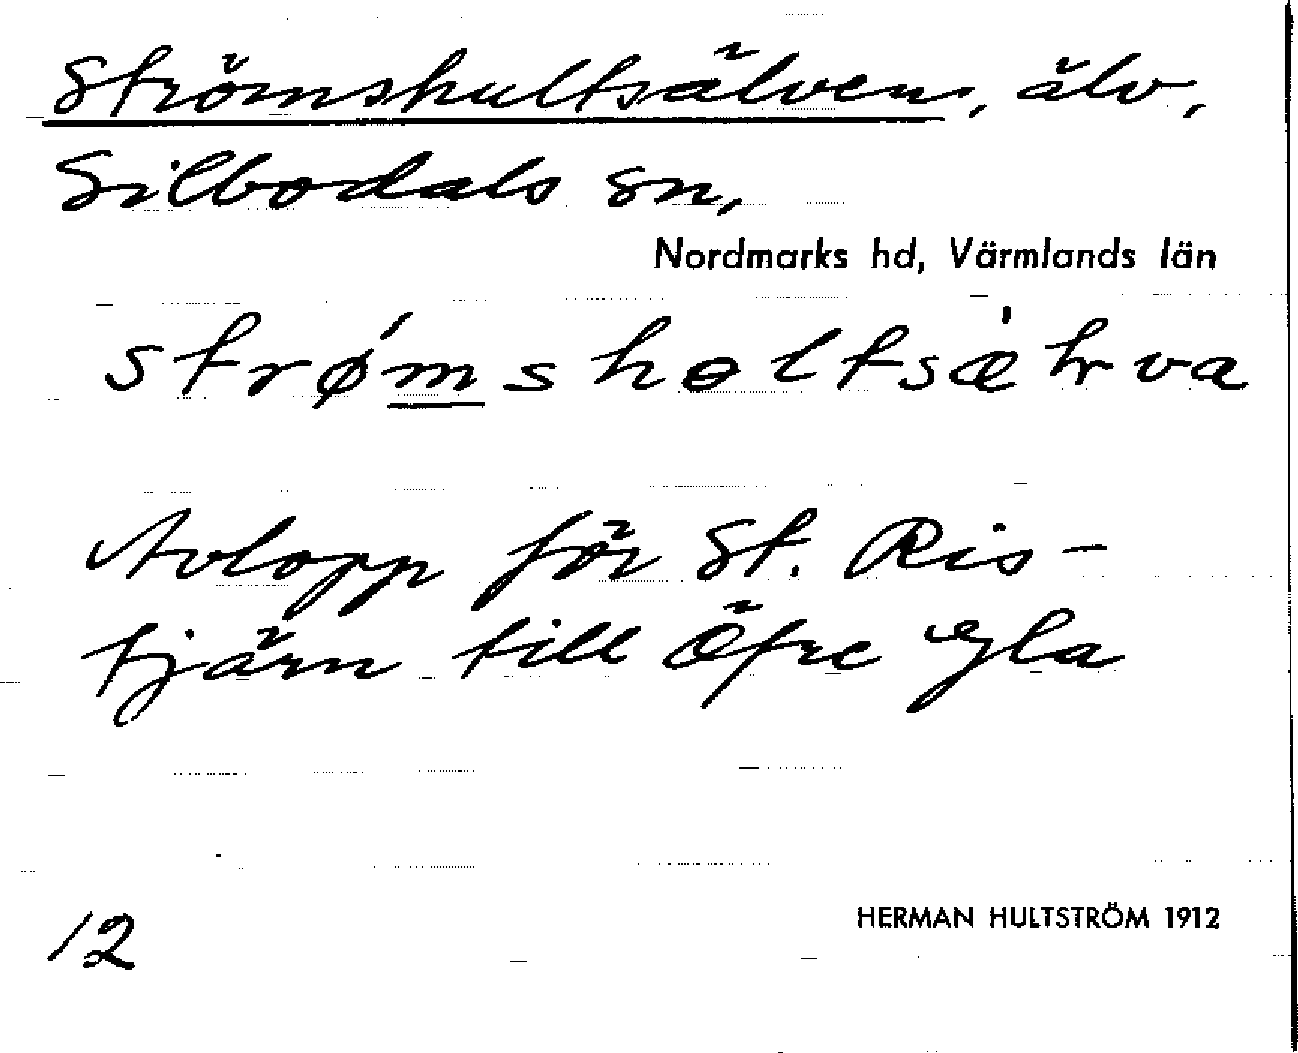 Strömshultsälven, älv,
Silbodals sn,
Nordmarks hd, Värmlands län
strø´m̲shɵltsæ`ɽva
Avlopp för St. Ris-
tjärn till Öfre Gla
12
HERMAN HULTSTRÖM 1912